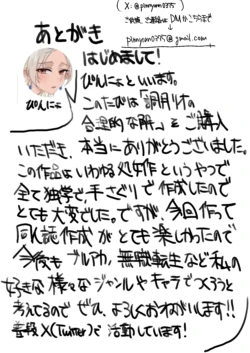 (X:@pianyam0325)
ご依頼、ご連絡はDMかこちらまで
pianyam0325@gmail.com
あとがき
はじめまして!
ぴんにょといいます。
ぴんにょ
このたびは「調月リオの
合理的な解」をご購入
いただき、本当にありがとうございました。
この作品はいわゆる処女作というやつで
全て独学で、手さぐりで作成したので
とても大変でした。ですが、今回作って
同人誌作成がとても楽しかったので
今後もブルアカ、無職転生など私の
好きな様々なジャンルやキャラでつくろうと
考えてるのでぜひ、よろしくおねがいします!!
普段X(Twitter)で活動しています!